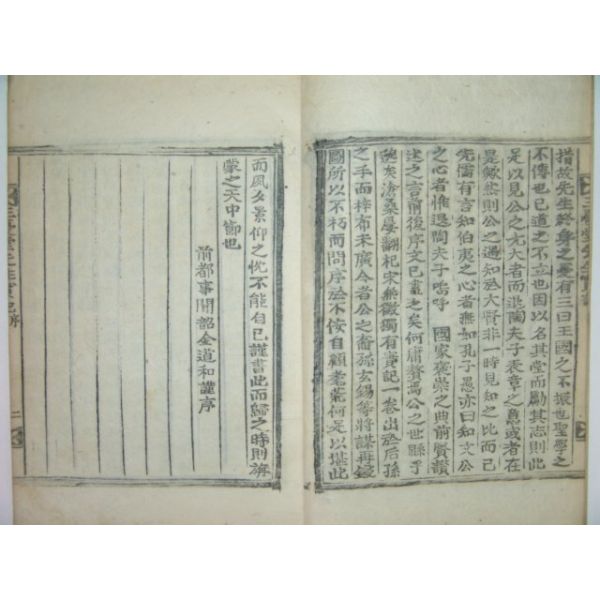 措故先生終身之憂有三曰王國之不振也聖學之
不傳也已道之不立也因以名其堂而勵其志則此
足以見公之尤大者而退陶夫子表章之意或者在
是歟然則公之遇知於大賢非一時見知之比而已
先儒有言知伯夷之心者無如孔子愚亦曰知文公
之心者惟退陶夫子嗚呼 國家褒崇之典前賢讚
述之言前後序文已盡之矣何庸贅焉公之世縣乎
魏矣滄桑屢翻杞宋無徵獨有實記一卷出於后孫
之手而梓布未廣今者公之裔孫玄錫等將謀再鋟
圖所以不朽而問序於不侫自顧耄荒何是以堪此
而風夕景仰之忱不能自已謹書此而歸之時則旃
蒙之天中節也
前都事聞韶金道和謹序